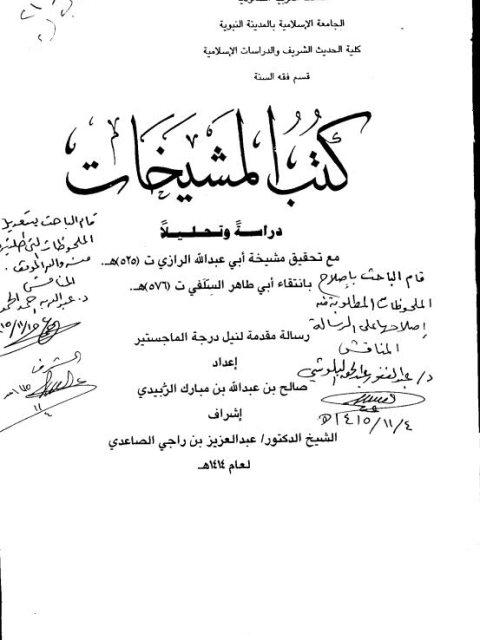 الجامعة الإسلامية بالمدينة النبوية
كلية الحديث الشريف والدراسات الإسلامية
قسم فقه السنة
كتب المشيخات
دراسةً وتحليلاً
مع تحقيق مشيخة أبي عبدالله الرازي ت (٥٢٥)هـ..
بانتقاء أبي طاهر السلفي ت (٥٧٦)هـ.
رسالة مقدمة لنيل درجة الماجستير
إعداد
صالح بن عبدالله بن مبارك الزُبيدي
إشراف
الشيخ الدكتور/ عبدالعزيز بن راجي الصاعدي
لعام ١٤١٤هـ
قام الباحث بإصلاح
الملحوظات المطلوبة منه
إصلاحها على الرسالة
المناقش
د/ عبدالغفور عبدالحق البلوشي
١٤١٥/١١/٤هـ
قام الباحث بتعديل
الملحوظات التي
منه والله الموفق.
المناقش
المشرف